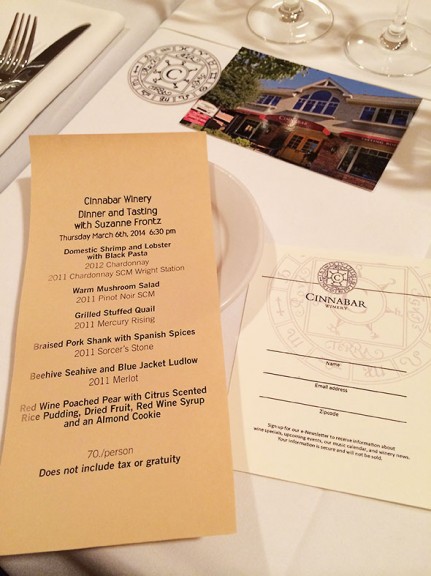 Cinnabar Winery
Dinner and Tasting
with Suzanne Frontz
Thursday March 6th, 2014 6:30 pm
Domestic Shrimp and Lobster
with Black Pasta
2012 Chardonnay
2011 Chardonnay SCM Wright Station
Warm Mushroom Salad
2011 Pinot Noir SCM
Grilled Stuffed Quail
2011 Mercury Rising
Braised Pork Shank with Spanish Spices
2011 Sorcer's Stone
Beehive Seahive and Blue Jacket Ludlow
2011 Merlot
Red Wine Poached Pear with Citrus Scented
Rice Pudding, Dried Fruit, Red Wine Syrup
and an Almond Cookie
70./person
Does not include tax or gratuity
C
CINNABAR
WINERY
Name
Email address
Zipcode
Sign up for our e-Newsletter to receive information about
wine specials, upcoming events, our music calendar, and winery news.
Your information is secure and will not be sold.